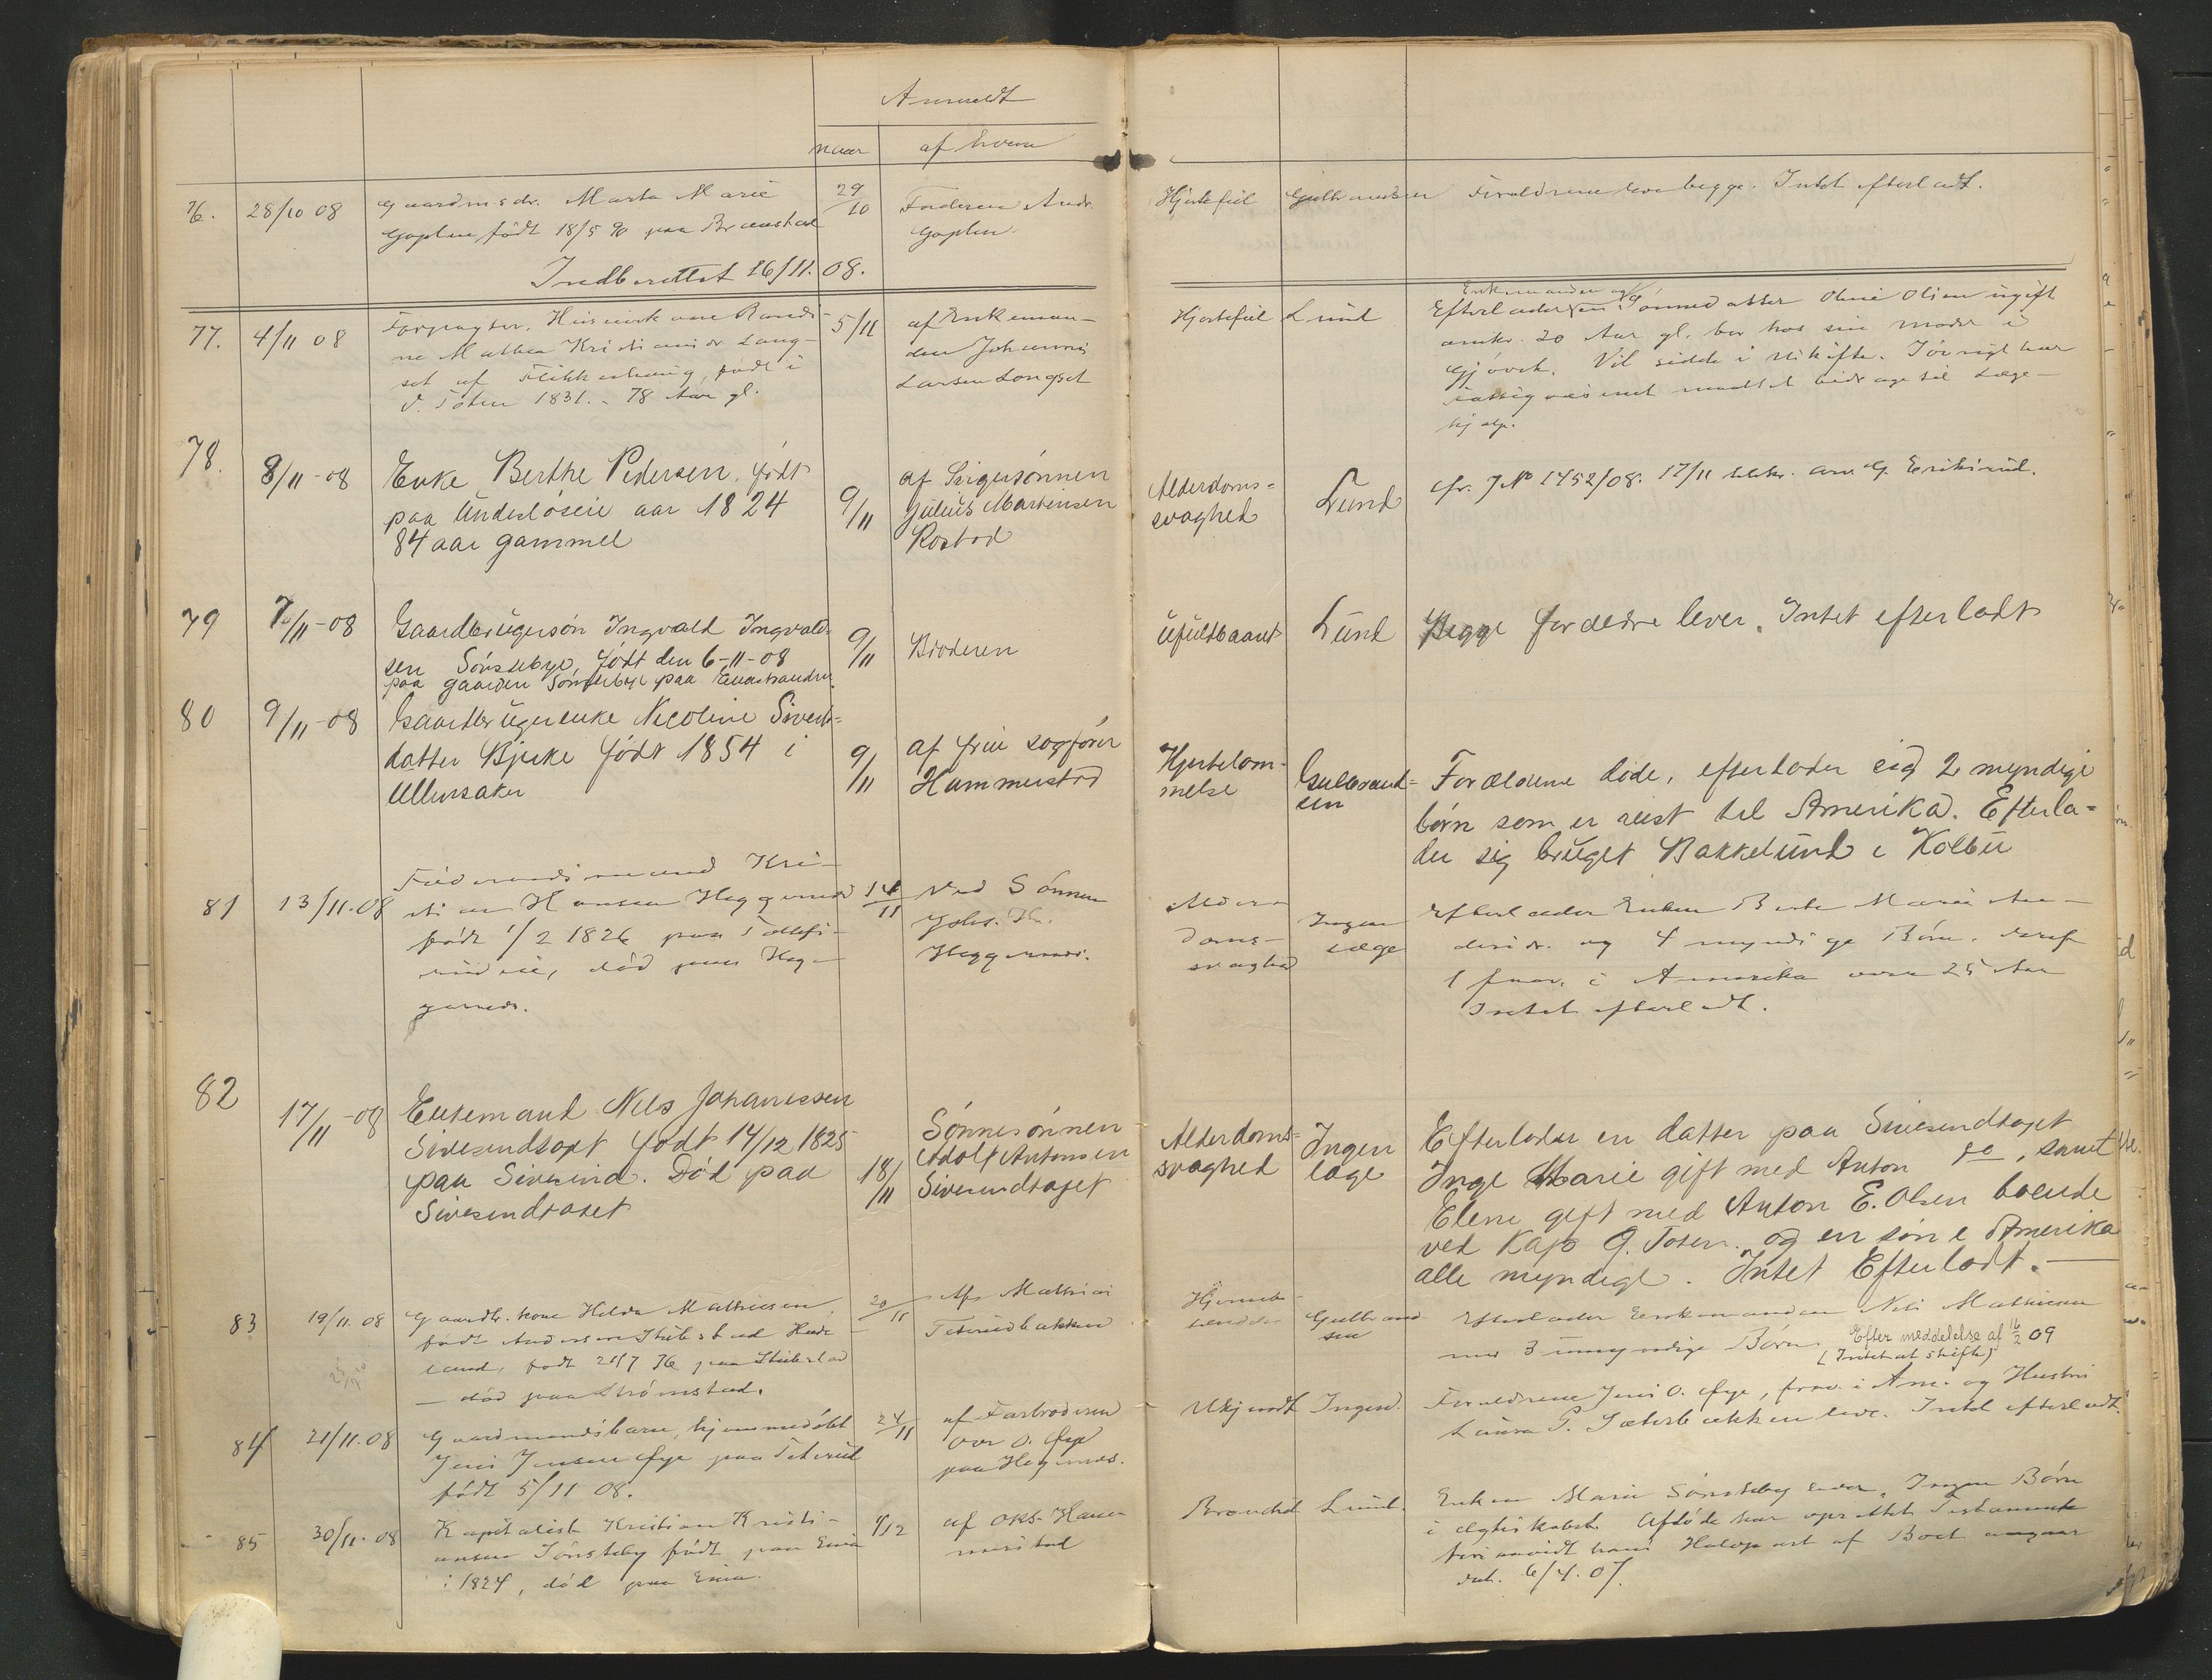 Anmeldt
naar
af hvem
76.
28/10 08
Gaardmsdr. Marta Marie
Goplen født 18/5 90 paa
29/10
Faderen Andr.
Goplen.
Hjertefeil
Gulbrandsen
Forældrene leve begge. Intet efterladt.
Indberettet 16/11. 08.
77.
4/11 08
Husmskone
ne Mathea Kristiansdr. Lang-
set af født i
V. Toten 1831. - 78 Aar gl.
5/11
af Enkeman-
den Johannes
Larsen Langset
Hjertefeil
Lund
Enkemanden og
Efterlader en Sønnedatter Oline Olsen ugift
omkr. 20 Aar gl. bor hos sin moder i
Gjøvik. Vil sidde i uskifte. Iøvrigt har
Fattigvæsenet maattet bidrage til Læge-
hjælp.
78.
8/11-08
Enke Berthe Pedersen. født
paa Underløseie aar 1824
84 aar gammel
9/11
af Svigersønnen
Julius Martinsen
Rostad
Alderdoms-
svaghed
Lund
cfr. J No 1752/08. 17/11
79
7/11-08
Gaardbrugersøn Ingvald Ingvald-
sen Sønsteby, født den 6-11-08
paa gaarden Sønsteby paa Einastranden
9/11
Broderen
Ufuldbaaret
Lund
Begge forældre lever. Intet efterladt
80
9/11-08
Gaardbrugerenke Nicoline Siverts-
datter Bjerke født 1854 i
Ullensaker
9/11
af frue sagfører
Hammerstad
Hjertelam-
melse
Gulbrand-
sen
Forældrene døde, efterlader sig 2 myndige
børn som er reist til Amerika. Efterla-
der sig bruget Bakkelund i Kolbu
81
13/11.08
Føderaadsmand Kri-
stian Hansen Haggernæs
født 1/2 1826 paa
død paa Hag-
gernæs.
14/11
Ved Sønnen
Johs. Kr.
Haggernæs.
Alder-
doms-
svaghed
Ingen
Læge
Efterlader Enken Berte Marie An-
dersdr. og 4 myndige Børn, deraf
1 frav. i Amerika over 25 Aar
Intet efterladt.
82
17/11-08
Enkemand Nils Johanessen
Sivesindtaget født 14/12 1825
paa Sivesind. Død paa
Sivesindtaget
18/11
Sønnesønnen
Adolf Antonsen
Sivesindtaget
Alderdoms-
svaghed
Ingen
læge
Efterlader en datter paa Sivesindtaget
Inge Marie gift med Anton do, samt
Elene gift med Anton E. Olsen boende
ved Kap Ø. Toten. og en søn i Amerika
alle myndige. Intet Efterladt.
83
19/11.08
Gaardbr.kone Helda Mathiesen,
født Andersen Stubstad Hade-
land, født 21/7 76 paa Stubstad
- død paa Strømstad.
20/11
Af Mathias
Teterudbakken
Gulbrand
sen
Efterlader Enkemanden Nils Mathiesen
med 3 umyndige Børn. Efter meddelelse af 16/2 09
(Intet at skifte)
84
21/11.08
Gaardmandsbarn, hjemmedøbt
Jens Jensen Øye paa Teterud
født 5/11 08.
24/11
af Farbroderen
Ove O. Øye
paa Hagernæs.
Ukjendt
Ingen.
Forældrene Jens O. Øye, frav. i Am. og Hustru
Laura P. Sæterbakken leve. Intet efterladt.
85
30/11.08
Kapitalist Kristian Kristi-
ansen Sønsteby født paa Eina
i 1824, død paa Eina.
1/12
af OKS. Ham-
merstad
Lund.
Enken Marie Sønsteby lever. Ingen Børn
i Ægteskabet. Afdøde har oprettet Testamente
forsaavidt hans Halvpart af Boet angaar
dat. 6/4.07.